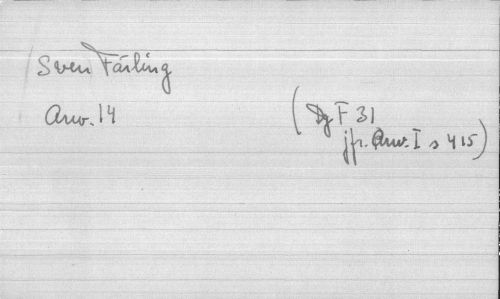 Sven Färling
Arw. 14
(Dg F 31
jfr. Arw. I s 415)